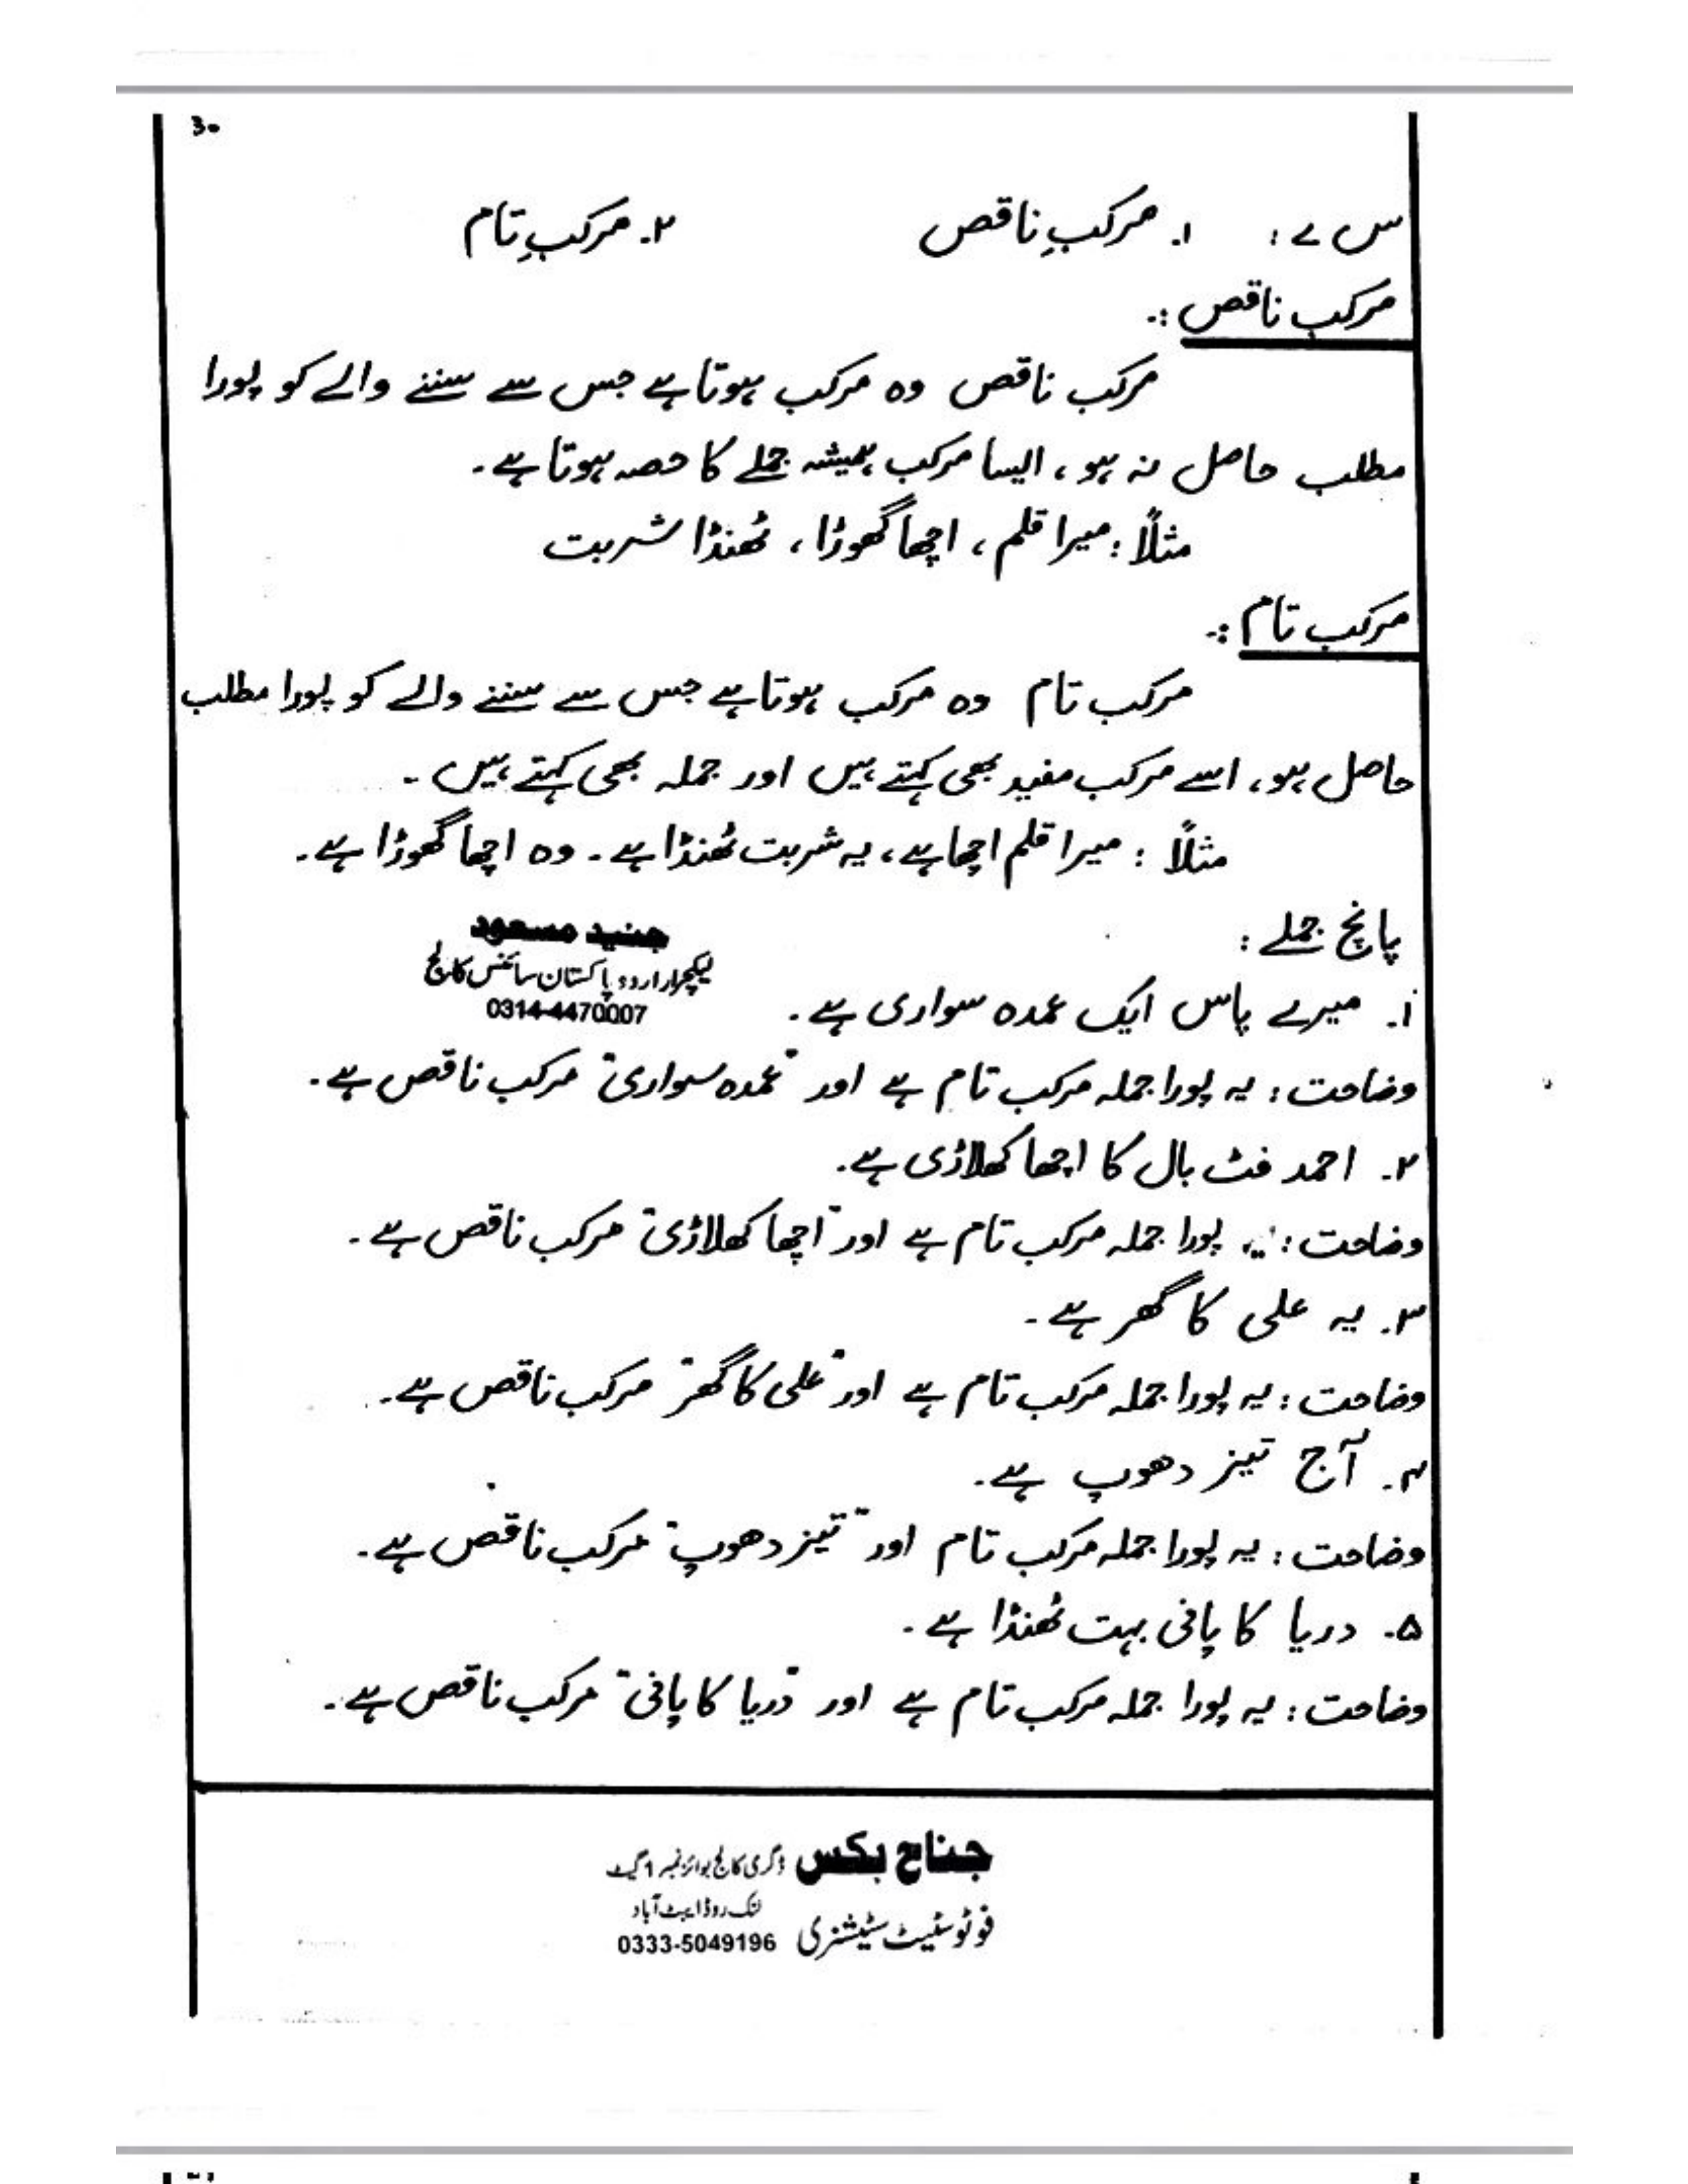 ۳۰
س ۷: ۱۔ مرکبِ ناقص ۲۔ مرکبِ تام
مرکب ناقص :۔
مرکب ناقص وہ مرکب ہوتا ہے جس سے سننے والے کو پورا
مطلب حاصل نہ ہو، ایسا مرکب ہمیشہ جملے کا حصہ ہوتا ہے۔
مثلاً: میرا قلم، اچھا گھوڑا، ٹھنڈا شربت
مرکب تام :۔
مرکب تام وہ مرکب ہوتا ہے جس سے سننے والے کو پورا مطلب
حاصل ہو، اسے مرکب مفید بھی کہتے ہیں اور جملہ بھی کہتے ہیں۔
مثلاً : میرا قلم اچھا ہے، یہ شربت ٹھنڈا ہے۔ وہ اچھا گھوڑا ہے۔
پانچ جملے :
جنید مسعود
لیکچرار اردو پاکستان سائنس کالج
0314-4470007
۱۔ میرے پاس ایک عمدہ سواری ہے۔
وضاحت : یہ پورا جملہ مرکب تام ہے اور "عمدہ سواری" مرکب ناقص ہے۔
۲۔ احمد فٹ بال کا اچھا کھلاڑی ہے۔
وضاحت : یہ پورا جملہ مرکب تام ہے اور "اچھا کھلاڑی" مرکب ناقص ہے۔
۳۔ یہ علی کا گھر ہے۔
وضاحت : یہ پورا جملہ مرکب تام ہے اور "علی کا گھر" مرکب ناقص ہے۔
۴۔ آج تیز دھوپ ہے۔
وضاحت : یہ پورا جملہ مرکب تام اور "تیز دھوپ" مرکب ناقص ہے۔
۵۔ دریا کا پانی بہت ٹھنڈا ہے۔
وضاحت : یہ پورا جملہ مرکب تام ہے اور "دریا کا پانی" مرکب ناقص ہے۔
جناح بکس ڈگری کالج بوائز نمبر 1 گیٹ
فوٹو سٹیٹ سٹیشنری لنک روڈ ایبٹ آباد
0333-5049196